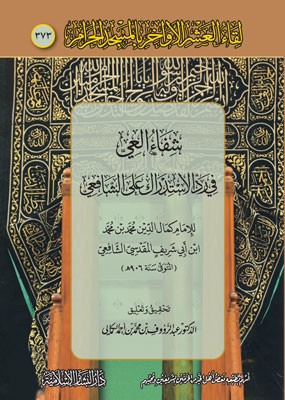 لقاء العشر الأواخر بالمسجد الحرام
٣٧٣
شفاء العي
في رد الاستدراك على الشافعي
للإمام كمال الدين محمد بن محمد
ابن أبي شريف المقدسي الشافعي
(المتوفى سنة ٩٠٦ هـ)
تحقيق وتعليق
الدكتور عبد الرؤوف بن محمد بن أحمد الكمالي
أسهم بطبعه بعض أهل الخير من الحرمين الشريفين ومحبيهم
دار البشائر الإسلامية